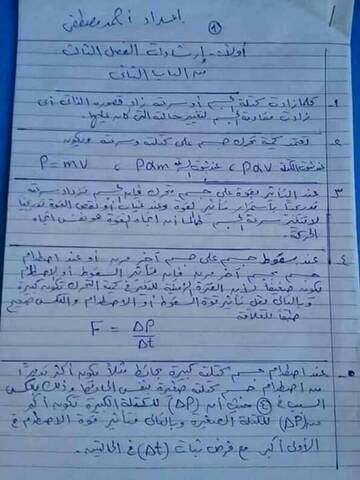 إعداد / أحمد مصطفى
١
أولاً :- إرشادات الفصل الثالث
من الباب الثانى
١- كلما زادت كتلة الجسم أو سرعته زاد قصوره الذاتى أى
زادت مقاومة الجسم لتغيير حالته التى كان عليها.
٢- تعتمد كمية تحرك جسم على كتلته وسرعته ويكون
P = mv ، P α m عند ثبوت السرعة ، P α v عند ثبوت الكتلة
٣- عند التأثير بقوة على جسم متحرك فإنه تزداد سرعته
تدريجياً بأستمرار تأثير القوة وعند غياب أو نقص القوة تدريجياً
لا تقل سرعة الجسم طالما أن اتجاه القوة هو نفس اتجاه
الحركة.
٤- عند سقوط جسم على جسم آخر مرن أو عند اصطدام
جسم بجسم آخر مرن فإن تأثير السقوط أو الاصطدام
يكون ضعيفاً لأن الفترة الزمنية للتغير فى كمية التحرك تكون كبيرة
وبالتالى يقل تأثير قوة السقوط أو الاصطدام والعكس صحيح
طبقاً للعلاقة
F = ΔP / Δt
٥- عند اصطدام جسم كتلته كبيرة بحائط مثلاً يكون أكثر تدميراً
من اصطدام جسم كتلته صغيرة بنفس الحائط وذلك بعكس
السبب فى ٤ حيث أن (ΔP) للكتلة الكبيرة تكون أكبر
من (ΔP) للكتلة الصغيرة وبالتالى تأثير قوة الاصطدام فى
الأولى أكبر مع فرض ثبات (Δt) فى الحالتين.